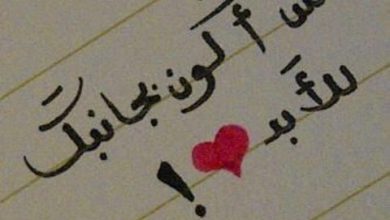 أكون بجانبكَ
للأبد !